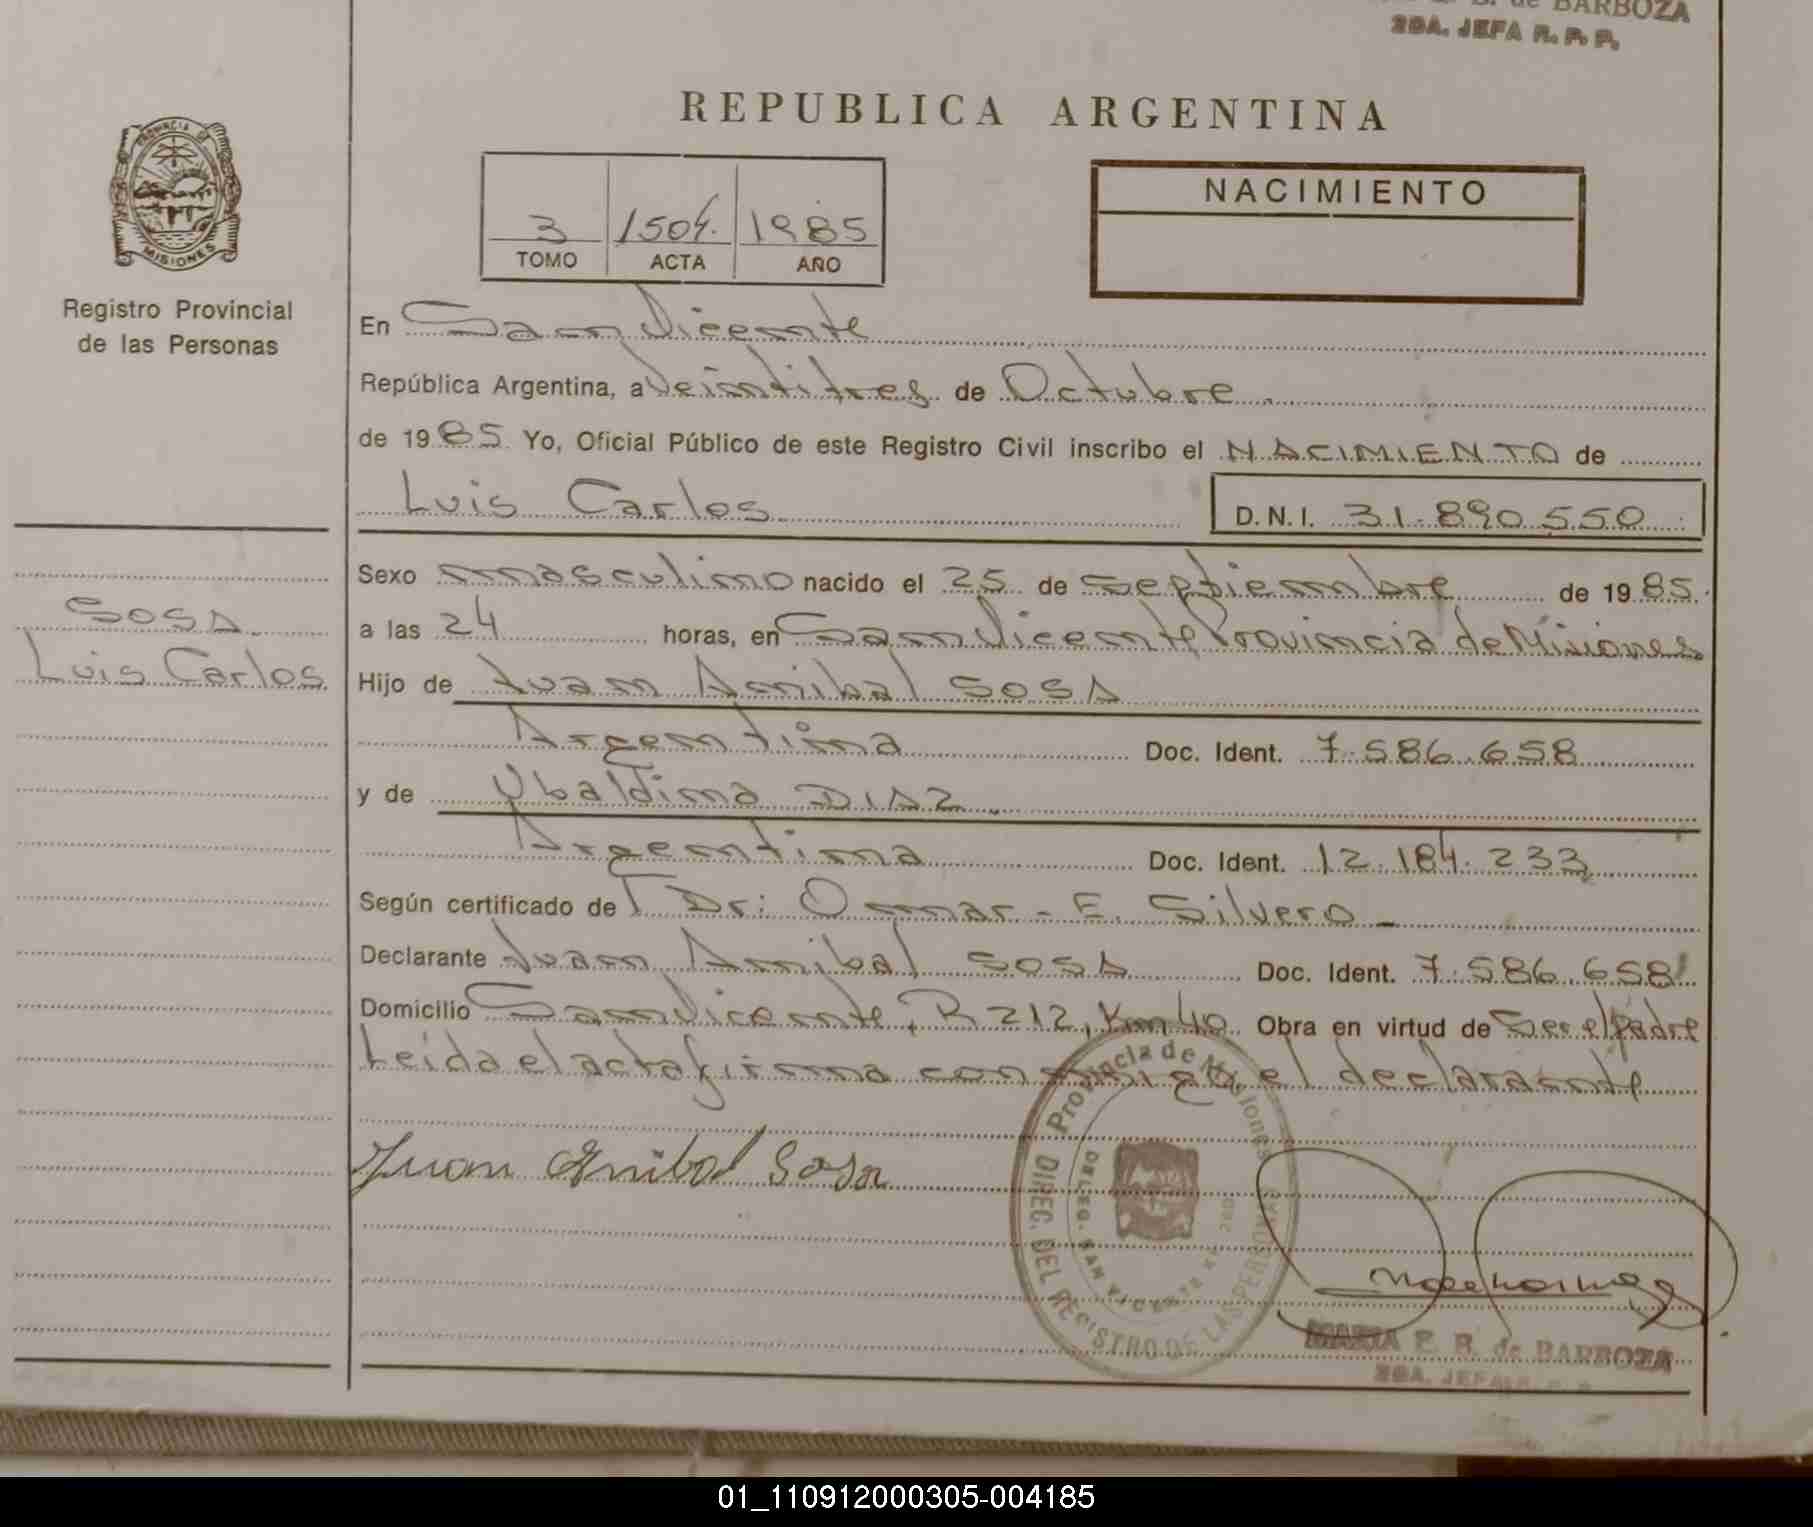 B. de BARBOZA
2DA. JEFA R. P. P.
REPUBLICA ARGENTINA
PROVINCIA DE MISIONES
Registro Provincial
de las Personas
3 1504. 1985
TOMO ACTA AÑO
NACIMIENTO
En San Vicente
República Argentina, a Veintitres de Octubre
de 1985 Yo, Oficial Público de este Registro Civil inscribo el NACIMIENTO de
Luis Carlos D.N.I. 31.890.550
SOSA
Luis Carlos
Sexo masculino nacido el 25 de Septiembre de 1985
a las 24 horas, en San Vicente Provincia de Misiones
Hijo de Juan Anibal SOSA
Argentina Doc. Ident. 7.586.658
y de Ubaldina DIAZ.
Argentina Doc. Ident. 12.184.233
Según certificado de Dr: Omar - E. Silvero -
Declarante Juan Anibal SOSA Doc. Ident. 7.586.658
Domicilio San Vicente, R 212, Km 40 Obra en virtud de Ser el padre
Leida el acta firma conmigo el declarante
Juan Anibal Sosa
Provincia de Misiones
DIREC. DEL REGISTRO DE LAS PERSONAS
DELEG. SAN VICENTE
MARIA E. B. de BARBOZA
2DA. JEFA R. P. P.
01_110912000305-004185